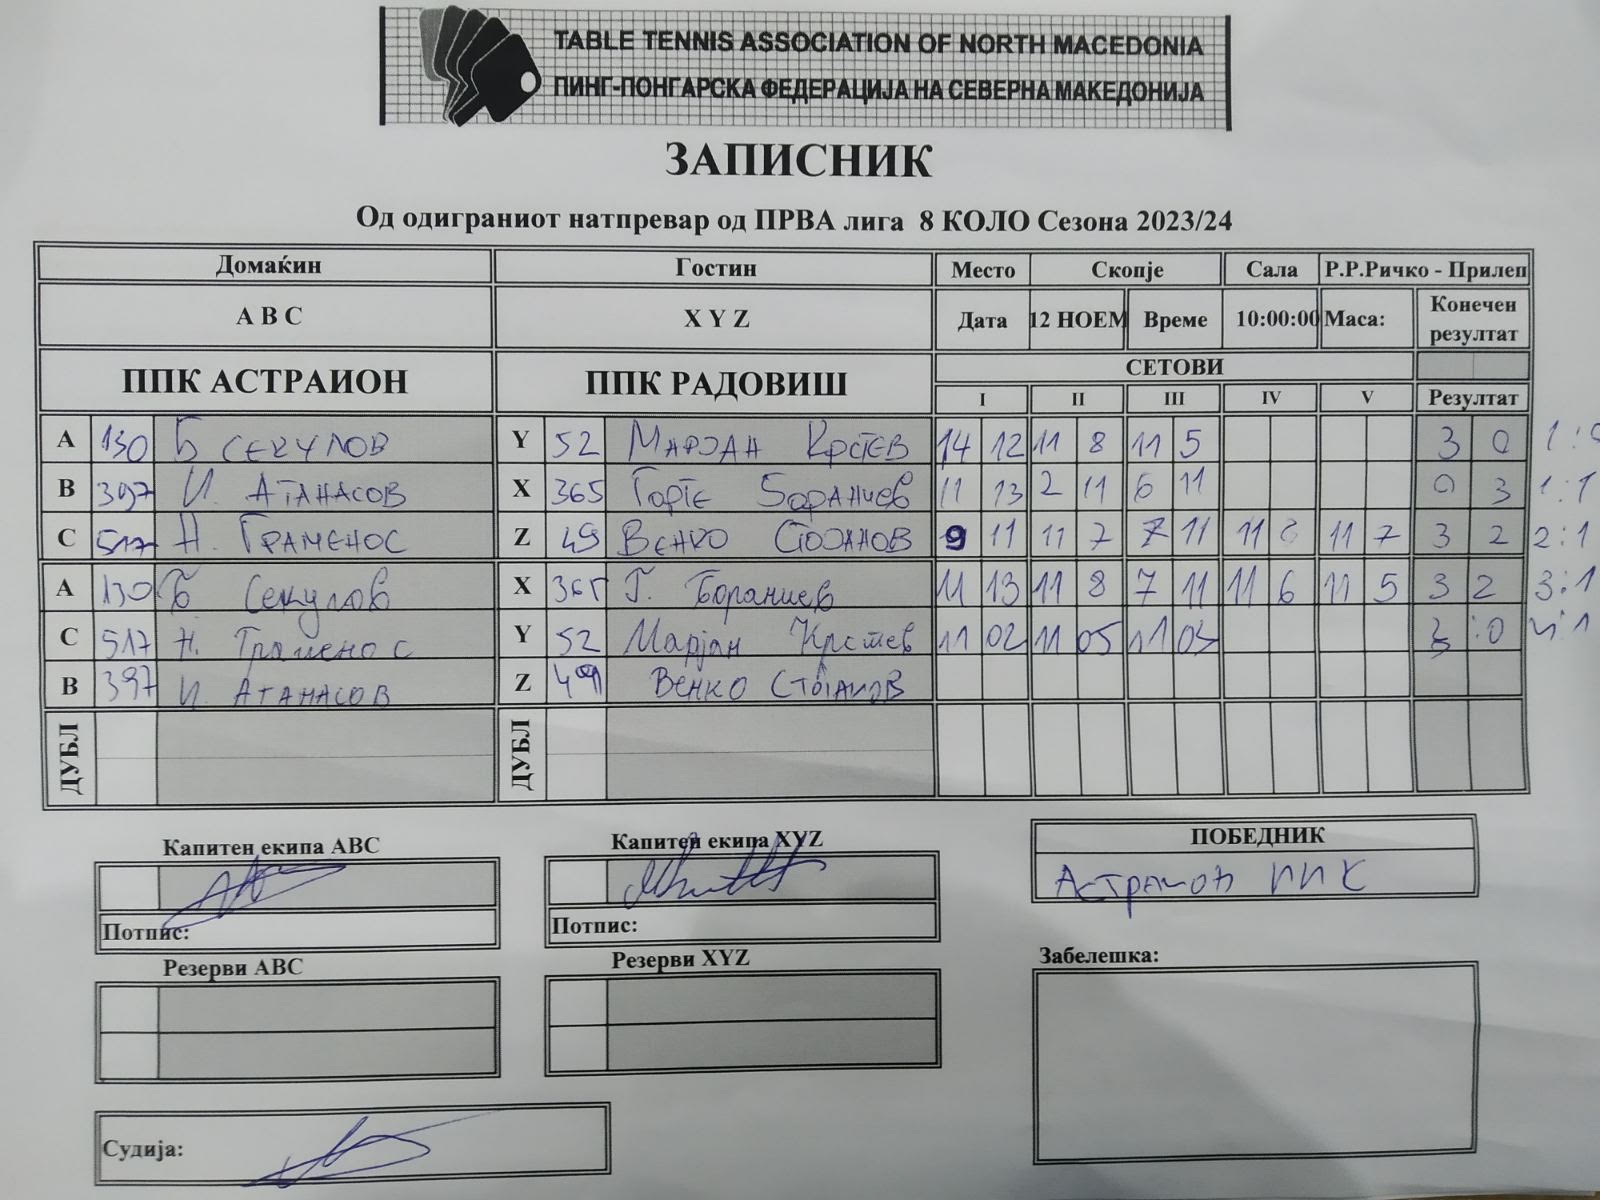 TABLE TENNIS ASSOCIATION OF NORTH MACEDONIA
ПИНГ-ПОНГАРСКА ФЕДЕРАЦИЈА НА СЕВЕРНА МАКЕДОНИЈА
ЗАПИСНИК
Од одиграниот натпревар од ПРВА лига 8 КОЛО Сезона 2023/24
Домаќин Гостин Место Скопје Сала Р.Р.Ричко - Прилеп
A B C X Y Z Дата 12 НОЕМ Време 10:00:00 Маса: Конечен резултат
ППК АСТРАИОН ППК РАДОВИШ СЕТОВИ
I II III IV V Резултат
A 130 Б СЕКУЛОВ Y 52 МАРЈАН КРСТЕВ 14 12 11 8 11 5 3 0
B 397 И. АТАНАСОВ X 365 11 13 2 11 6 11 0 3 1:1
C 517 Н. ГРАМЕНОС Z 49 ВЕНКО СТОЈАНОВ 9 11 11 7 7 11 11 11 7 3 2 2:1
A 130 Б Секулов X 365 Г. Бораниев 11 13 11 8 7 11 11 6 11 5 3 2 3:1
C 517 Н. Граменос Y 52 Марјан Крстев 11 02 11 05 11 03 3:0 4:1
B 397 И АТАНАСОВ Z 49 ВЕНКО СТОЈАНОВ
ДУБЛ ДУБЛ
Капитен екипа ABC Капитен екипа XYZ ПОБЕДНИК
Астраион ППК
Потпис: Потпис:
Резерви ABC Резерви XYZ Забелешка:
Судија: